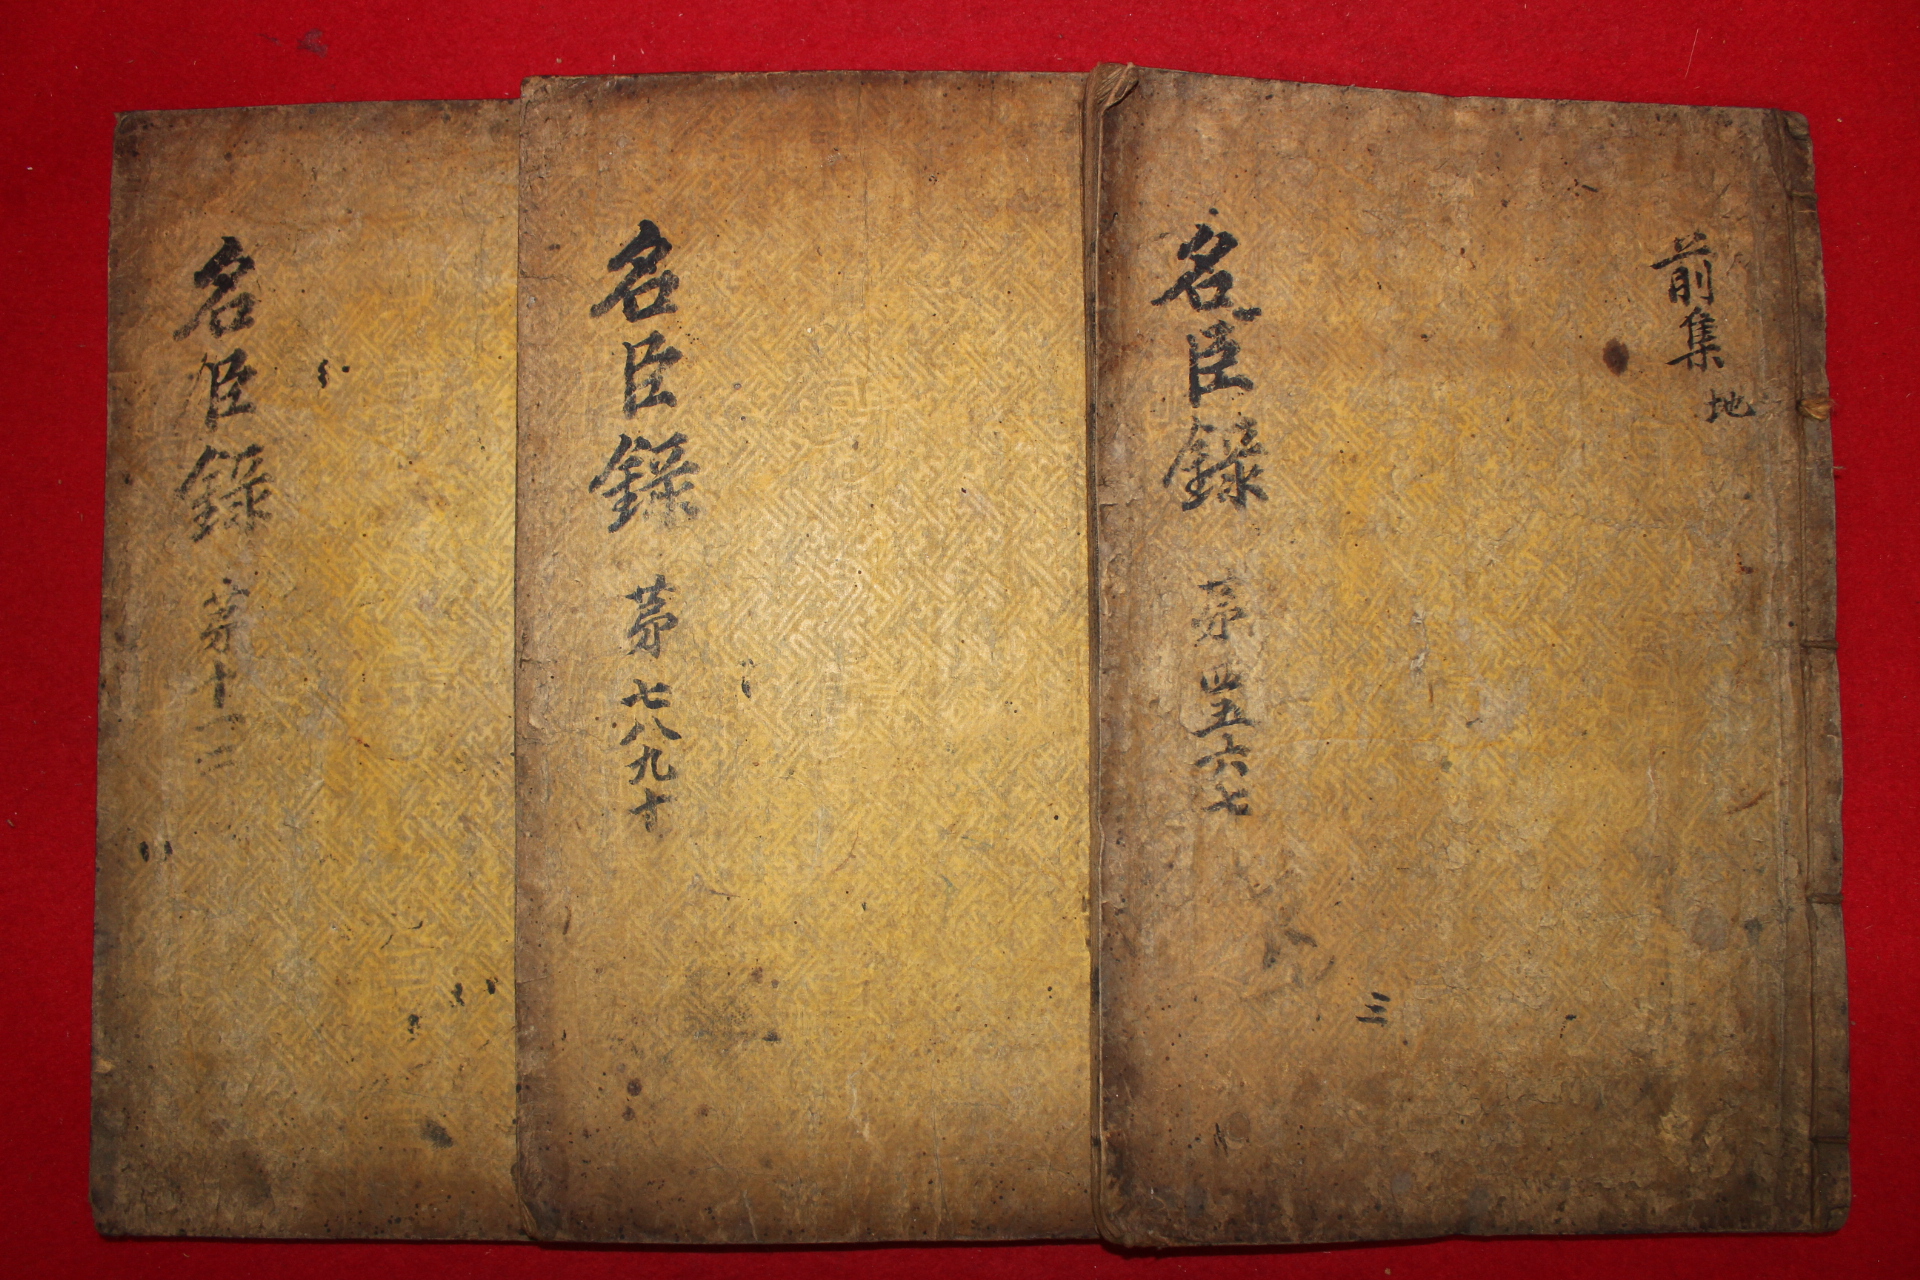 前集
地
名臣錄 第四五六七
三
名臣錄 第七八九十
名臣錄 第十一二